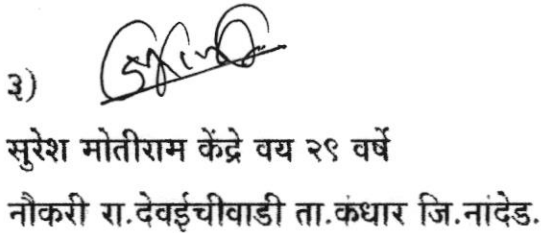 ३)
सुरेश मोतीराम केंद्रे वय २९ वर्षे
नौकरी रा.देवईचीवाडी ता.कंधार जि.नांदेड.